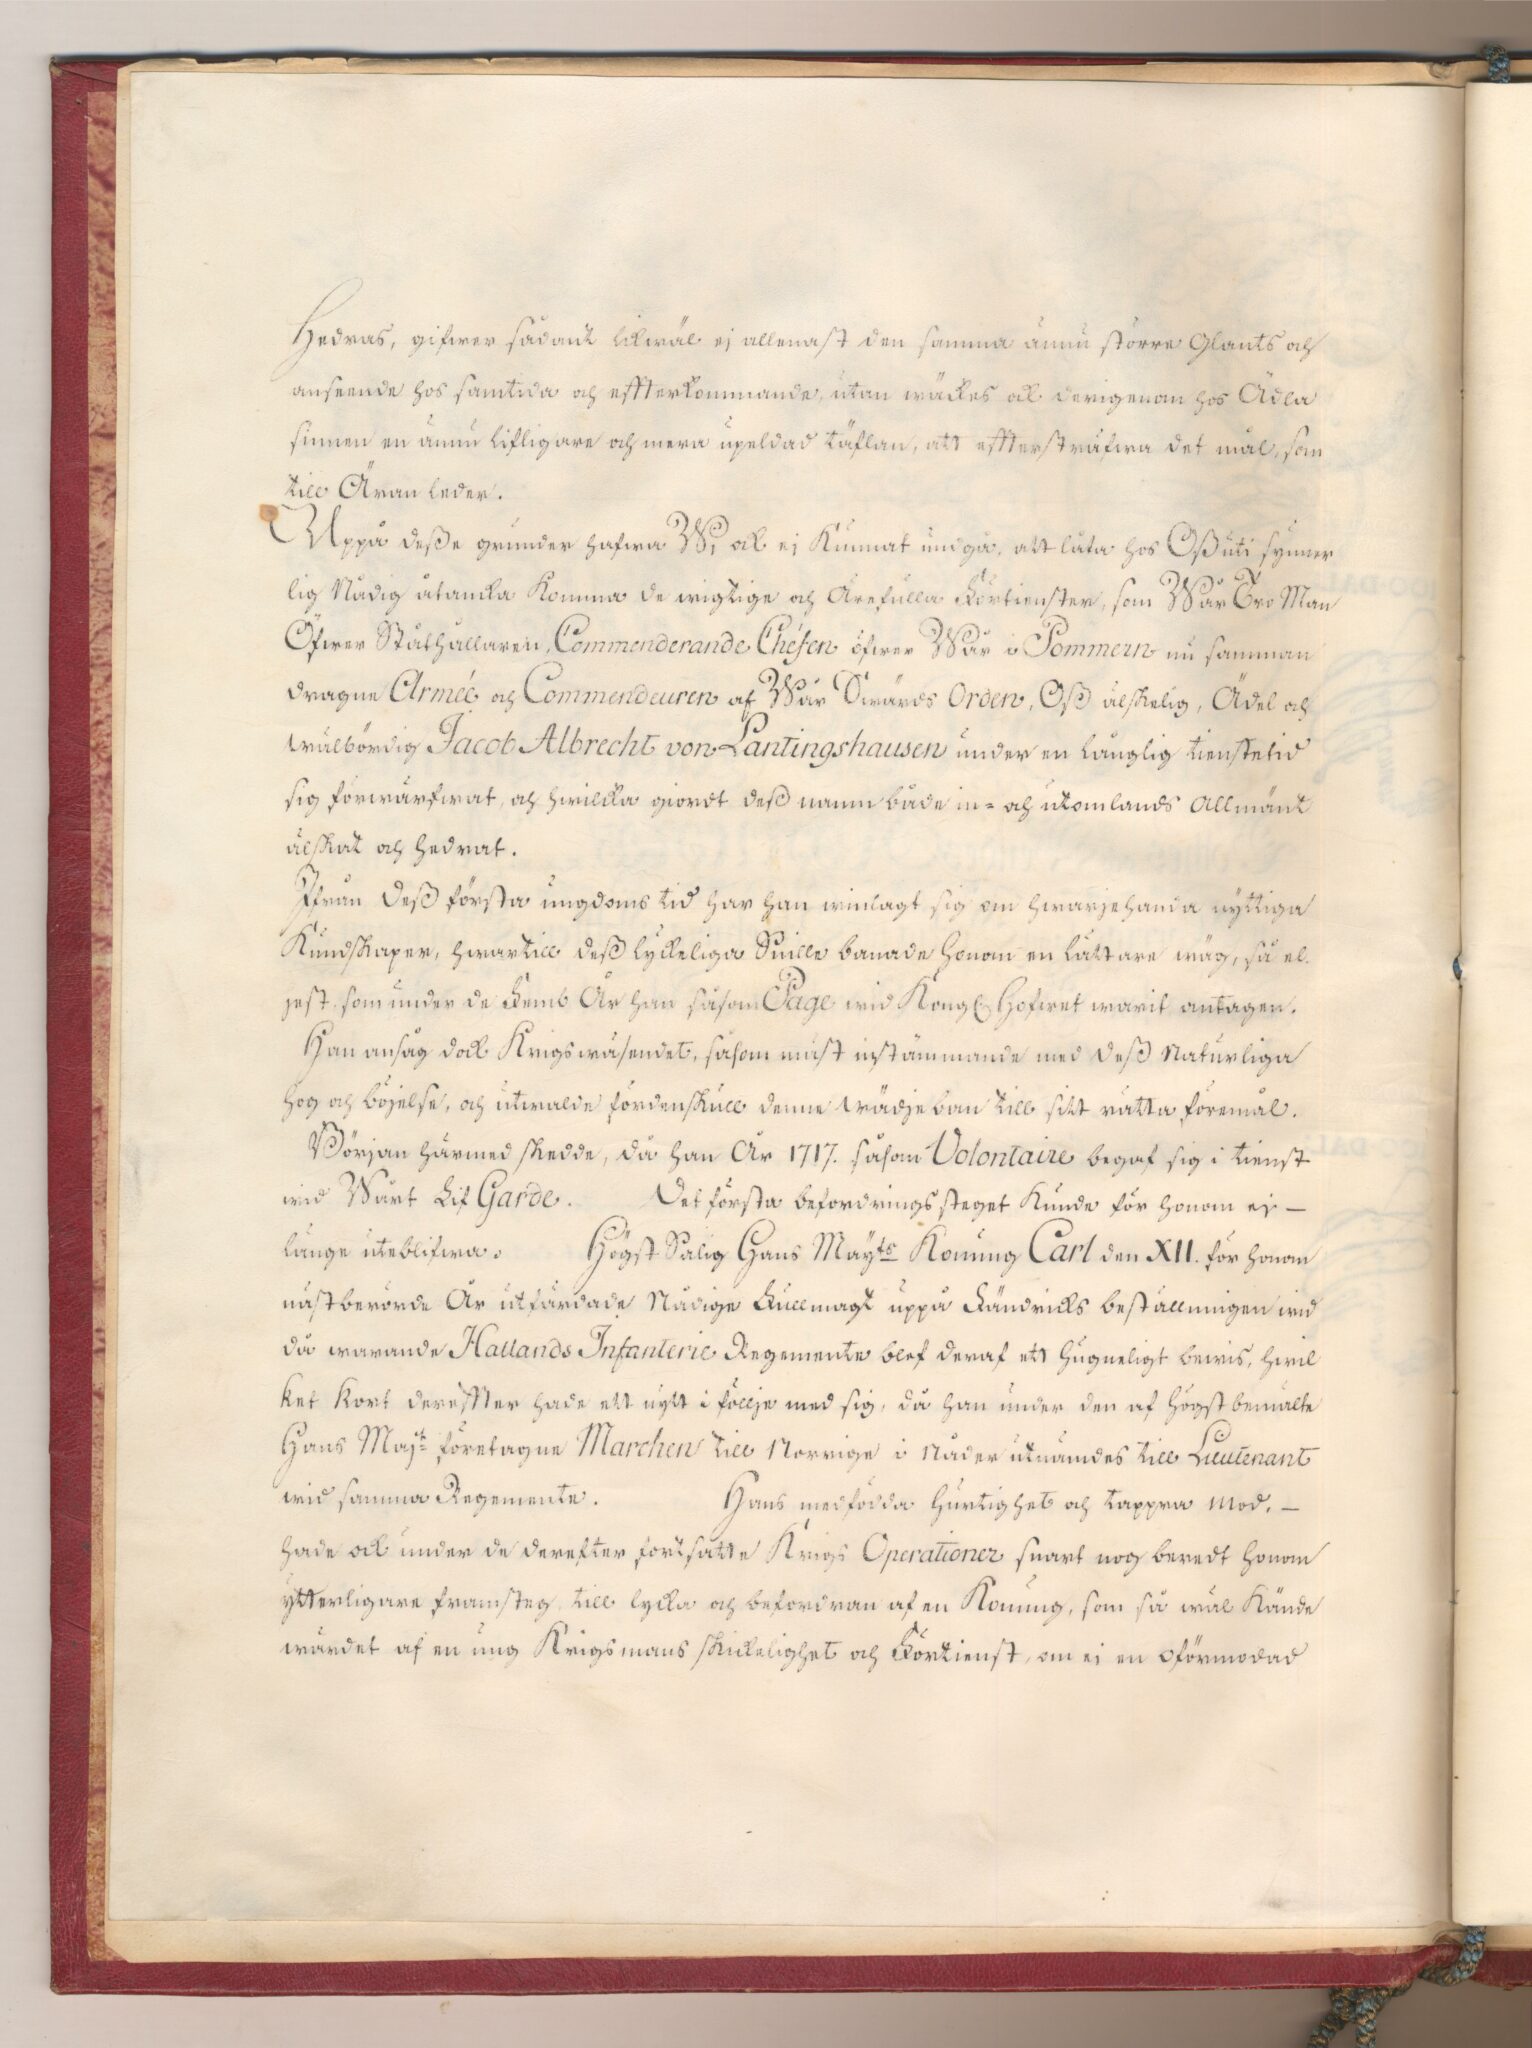 Hedras, gifwer sådant lickwäl ej allenast den samma ännu större Glants och
anseende hos samtida och effterkommande, utan wäckes ock derigenom hos Ädla
sinnen en ännu lifligare och mera upeldad täflan, att efftersträfwa det mål, som
till Äran leder.
Uppå deße grunder hafwa Wi ock ej kunnat undgå, att låta hos Oß uti synner
lig Nådig åtancka komma de wigtige och Ärefulla Förtienster, som Wår Tro Man
Öfwer Ståthållaren, Commenderande Chefen öfwer Wår i Pommern nu samman
dragne Armée och Commendeuren af Wår Swärds Orden, Oß älskelig, Ädel och
wälbördig Jacob Albrecht von Lantingshausen under en långlig tienstetid
sig förwärfwat, och hwilcka giordt deß namn både in- och utomlands Allmänt
älskat och hedrat.
Ifrån deß första ungdoms tid har han winlagt sig om hwarjehanda nyttiga
Kundskaper, hwartill deß lyckeliga Snille banade honom en lättare wäg, så el
jest som under de Fem År han såsom Page wid Kongl. Hofwet warit antagen.
Han ansåg dock Krigswäsendet, såsom mäst instämmande med deß Naturliga
hog och böjelse, och utwalde fördenskull denne wädjeban till sitt rätta föremål.
Början härmed skedde, då han År 1717. såsom Volontaire begaf sig i tienst
wid Wårt Lif Garde. Det första befordrings steget kunde för honom ej –
länge uteblifwa. Högst Salig Hans Mayts Konung Carl den XII. för honom
nästberörde År utfärdade Nådige Fullmagt uppå Fändricks beställningen wid
då warande Hallands Infanterie Regemente blef deraf ett hugneligt bewis, hwil
ket kort dereffter hade ett nytt i föllje med sig, då han under den af högstbemälte
Hans Majt företagne Marchen till Norrige i Nåder utnämdes till Lieutenant
wid samma Regemente. Hans medfödda hurtighet och tappra mod, –
hade ock under de derefter fortsatte Krigs Operationer snart nog beredt honom
ytterligare framsteg till lycka och befordran af en Konung, som så wäl kände
wärdet af en ung Krigsmans skickelighet och Förtienst, om ej en oförmodad